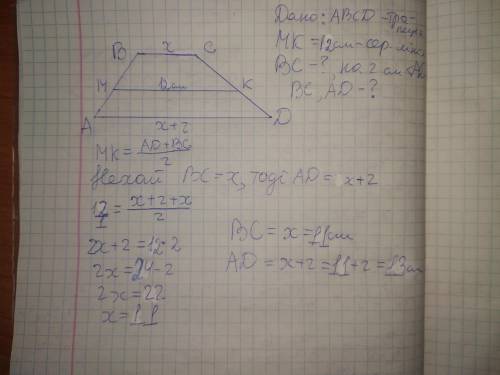 Дано: ABCD - тра-
пеція
MK = 12 см - сер. лінія
BC - ?, на 2 см < AD
BC, AD - ?
B x C
M 12 см K
A x+2 D
MK = AD+BC / 2
Нехай BC = x, тоді AD = x+2
12 / 1 = x+2+x / 2
2x+2 = 12·2
2x = 24-2
2x = 22
x = 11
BC = x = 11 см
AD = x+2 = 11+2 = 13 см